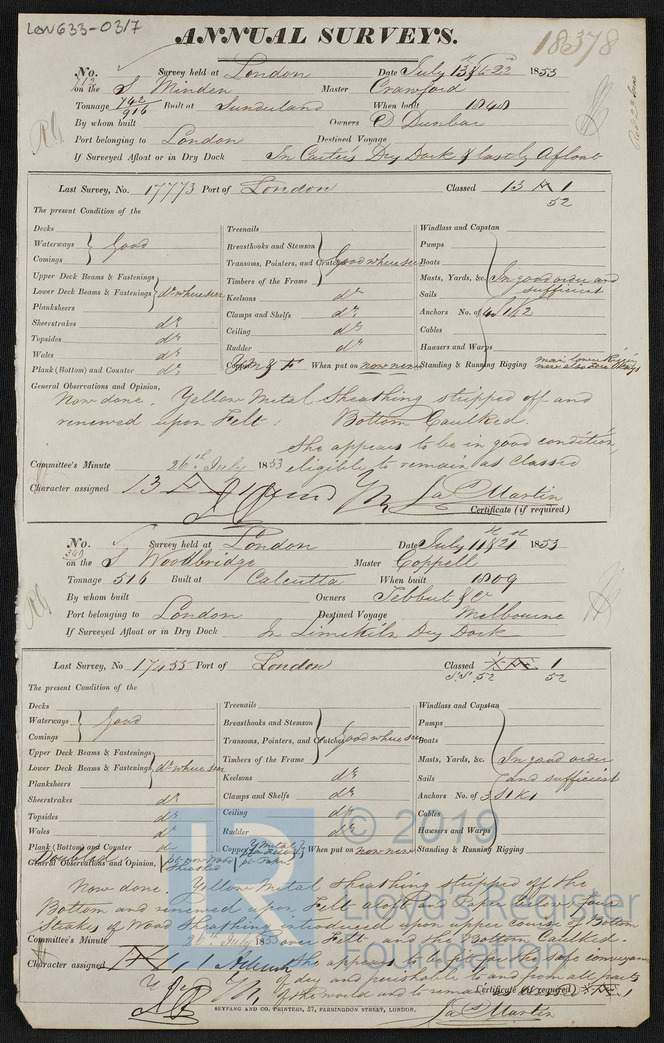 LON633-0317
ANNUAL SURVEYS.
18378
No. 712 Survey held at London Date July 13 & 22 1853
on the S Minden Master Crawford
Tonnage 742/916 Built at Sunderland When built 1848
By whom built Owners D Dunbar
Port belonging to London Destined Voyage
If Surveyed Afloat or in Dry Dock In Carter's Dry Dock & lastly Afloat
Last Survey, No. 17773 Port of London Classed 13 A 1
52
The present Condition of the
Decks
Waterways } Good
Comings
Upper Deck Beams & Fastenings
Lower Deck Beams & Fastenings } do where seen
Planksheers
Sheerstrakes do
Topsides do
Wales do
Plank (Bottom) and Counter do
Treenails
Breasthooks and Stemson
Transoms, Pointers, and Crutches } Good where seen
Timbers of the Frame
Keelsons do
Clamps and Shelfs do
Ceiling do
Rudder do
Copper Y M & F When put on now new
Windlass and Capstan
Pumps
Boats
Masts, Yards, &c. } In good order and
Sails sufficient
Anchors No. of 4 S 1 K 2
Cables
Hawsers and Warps
Standing & Running Rigging main lower Rigging
new also
General Observations and Opinion,
Now done. Yellow Metal Sheathing stripped off and
renewed upon Felt: Bottom Caulked.
She appears to be in good condition,
eligible to remain as classed
Committee's Minute 26th July 1853
Character assigned 13 A 1
Jas Martin
Certificate (if required)
No. 340 Survey held at London Date July 11 & 21st 1853
on the S Woodbridge Master Coppell
Tonnage 516 Built at Calcutta When built 1809
By whom built Owners Tebbut & Co
Port belonging to London Destined Voyage Melbourne
If Surveyed Afloat or in Dry Dock In Limekiln Dry Dock
Last Survey, No 17455 Port of London Classed 1
S.S. 52 52
The present Condition of the
Decks
Waterways } Good
Comings
Upper Deck Beams & Fastenings
Lower Deck Beams & Fastenings } do where seen
Planksheers
Sheerstrakes do
Topsides do
Wales do
Plank (Bottom) and Counter do
Doubled
Treenails
Breasthooks and Stemson
Transoms, Pointers, and Crutches } Good where seen
Timbers of the Frame
Keelsons do
Clamps and Shelfs do
Ceiling do
Rudder do
Copper Y Metal When put on now new
Windlass and Capstan
Pumps
Boats
Masts, Yards, &c. } In good order
Sails and sufficient
Anchors No. of 3 S 1 K 1
Cables
Hawsers and Warps
Standing & Running Rigging
General Observations and Opinion,
Now done. Yellow Metal Sheathing stripped off the
Bottom and renewed upon Felt aloft and Paper below Four
Strakes of Wood Sheathing introduced upon upper course of Bottom
over Felt and the Bottom Caulked.
Committee's Minute 26th July 1853
Character assigned
She appears to be fit for the safe conveyance
of dry and perishable to and from all parts
of the world and to remain
Certificate (if required)
Jas Martin
SEYFANG AND CO. PRINTERS, 57, FARRINGDON STREET, LONDON.
© 2019
Lloyd's Register
Foundation
LR